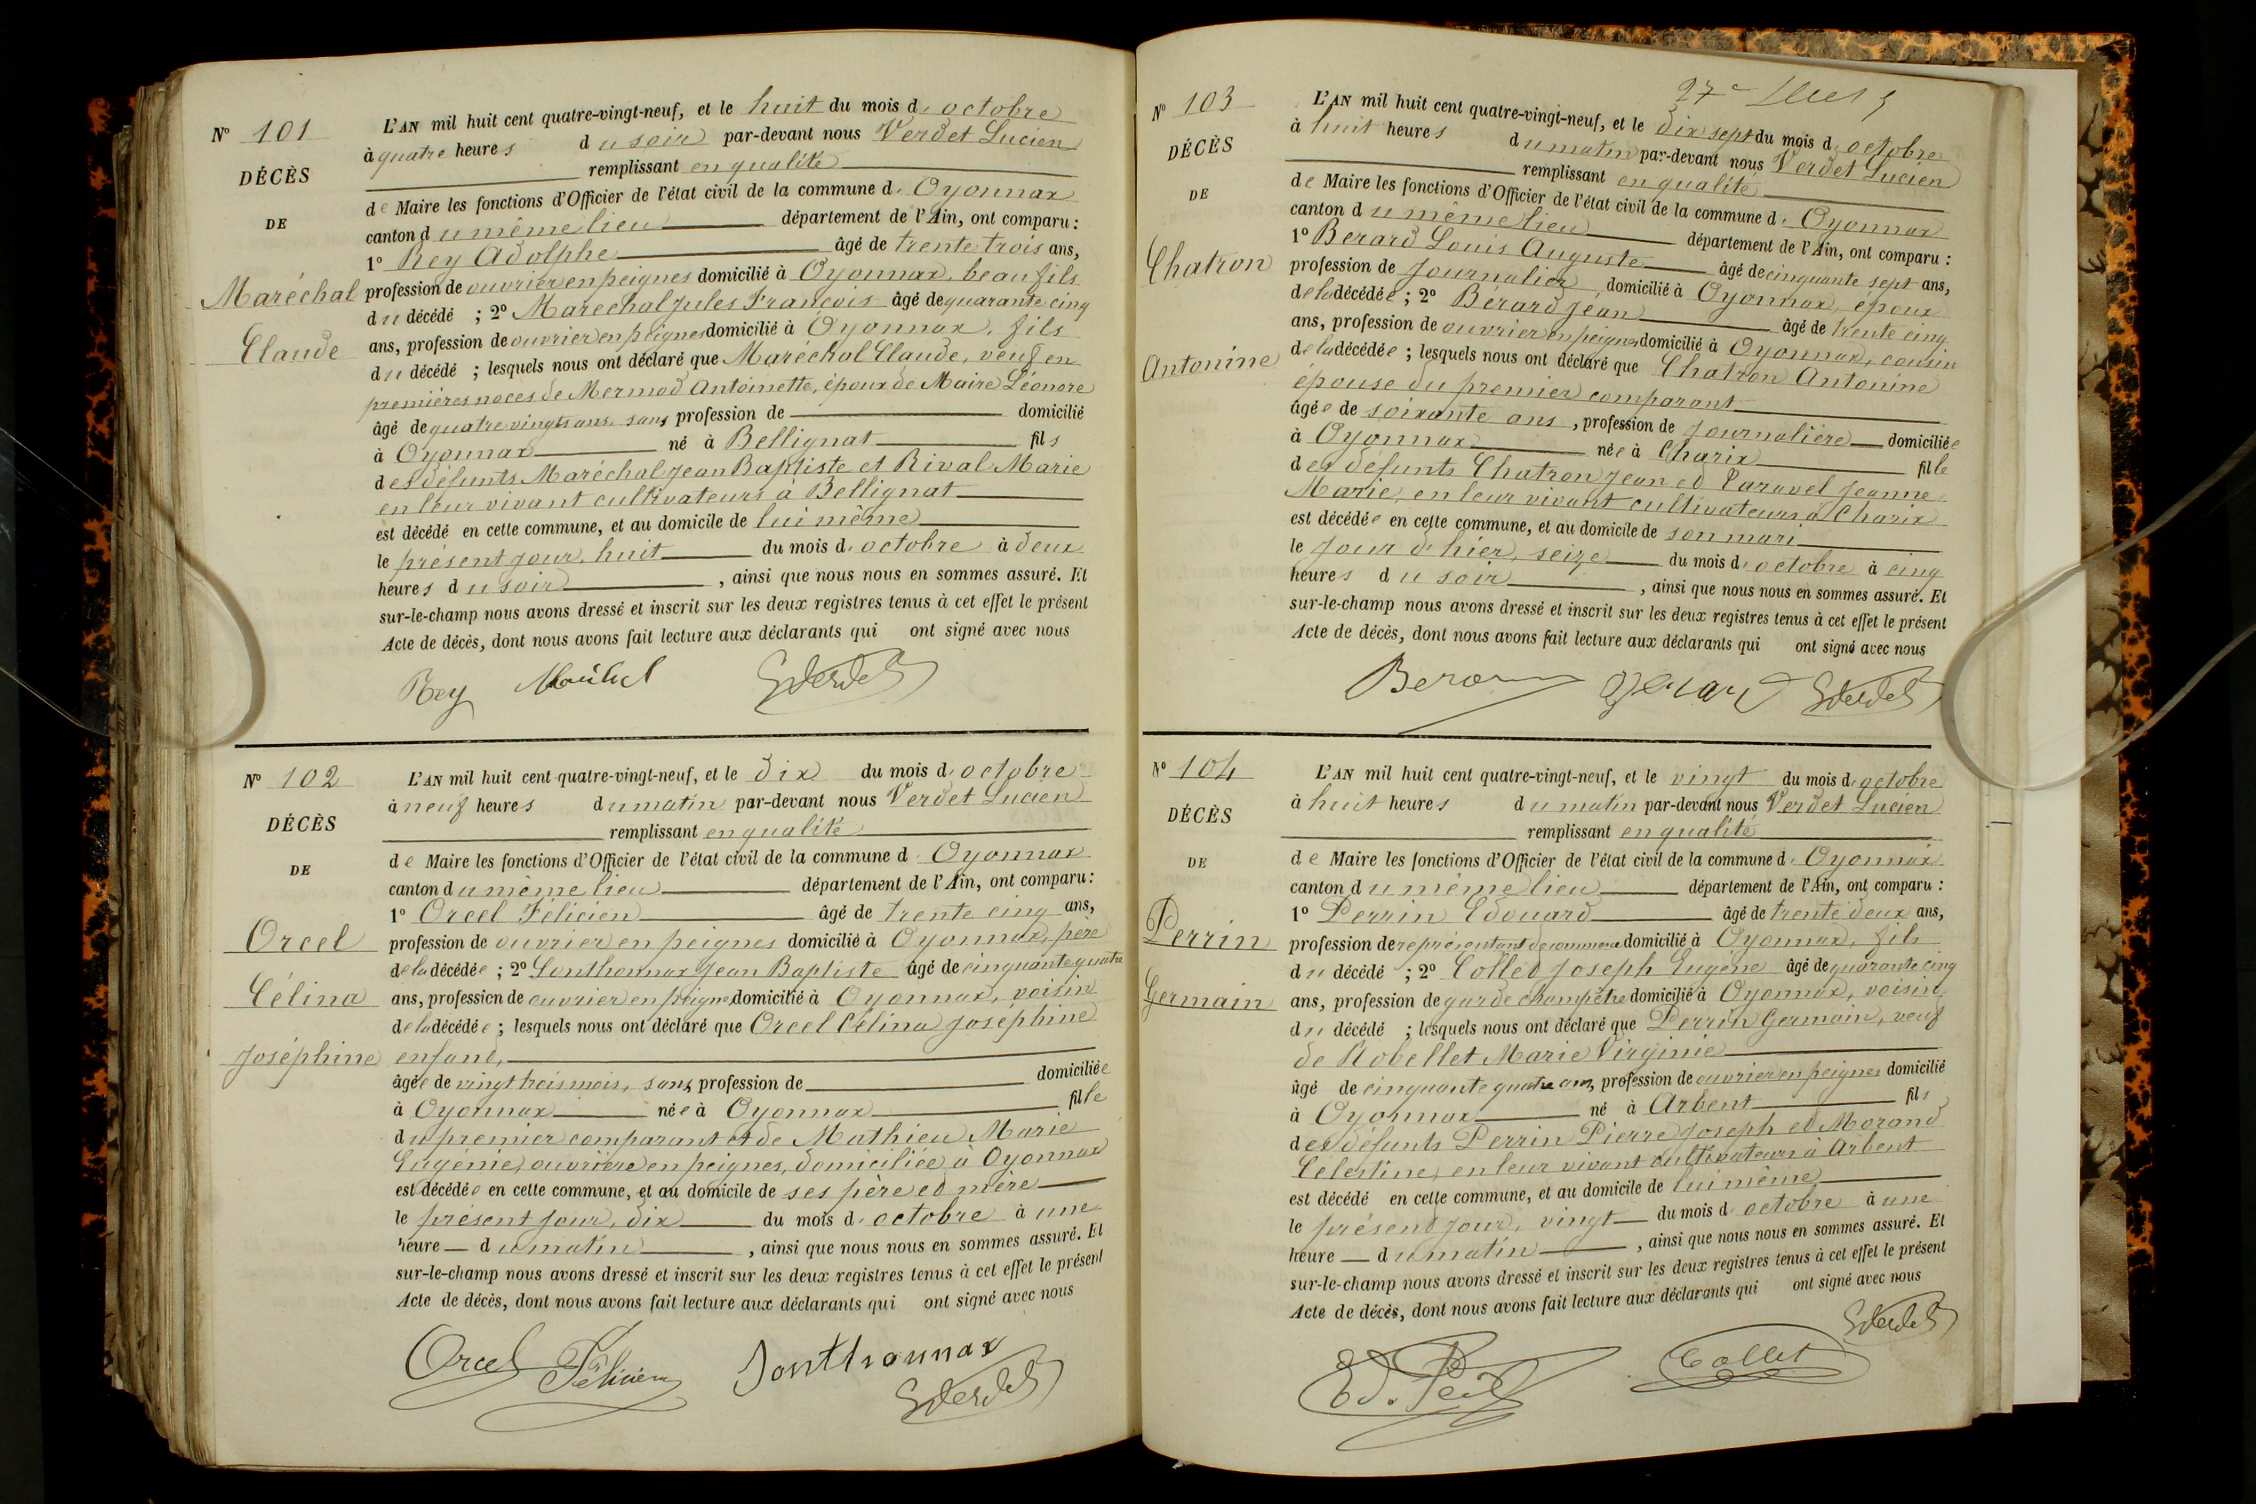 N° 101
DÉCÈS
DE
Maréchal
Claude
L'AN mil huit cent quatre-vingt-neuf, et le huit du mois d'octobre
à quatre heures du soir par-devant nous Verdet Lucien
remplissant en qualité
de Maire les fonctions d'Officier de l'état civil de la commune d'Oyonnax
canton du même lieu département de l'Ain, ont comparu :
1° Rey Adolphe âgé de trente trois ans,
profession de ouvrier en peignes domicilié à Oyonnax, beau fils
du décédé ; 2° Maréchal Jules François âgé de quarante cinq
ans, profession de ouvrier en peignes domicilié à Oyonnax, fils
du décédé ; lesquels nous ont déclaré que Maréchal Claude, veuf en
premières noces de Mermod Antoinette, époux de Maire Léonore
âgé de quatre vingts ans, sans profession de domicilié
à Oyonnax né à Bellignat fils
des défunts Maréchal Jean Baptiste et Rival Marie
en leur vivant cultivateurs à Bellignat
est décédé en cette commune, et au domicile de lui même
le présent jour, huit du mois d'octobre à deux
heures du soir, ainsi que nous nous en sommes assuré. Et
sur-le-champ nous avons dressé et inscrit sur les deux registres tenus à cet effet le présent
Acte de décès, dont nous avons fait lecture aux déclarants qui ont signé avec nous
Rey Maréchal LVerdet
N° 102
DÉCÈS
DE
Orcel
Célina
Joséphine
L'AN mil huit cent quatre-vingt-neuf, et le dix du mois d'octobre
à neuf heures du matin par-devant nous Verdet Lucien
remplissant en qualité
de Maire les fonctions d'Officier de l'état civil de la commune d'Oyonnax
canton du même lieu département de l'Ain, ont comparu :
1° Orcel Félicien âgé de trente cinq ans,
profession de ouvrier en peignes domicilié à Oyonnax, père
de la décédée ; 2° Sonthonnax Jean Baptiste âgé de cinquante quatre
ans, profession de ouvrier en peignes domicilié à Oyonnax, voisin
de la décédée ; lesquels nous ont déclaré que Orcel Célina Joséphine
enfant,
âgée de vingt trois mois, sans profession de domiciliée
à Oyonnax née à Oyonnax fille
du premier comparant et de Mathieu Marie
Eugénie, ouvrière en peignes, domiciliée à Oyonnax
est décédée en cette commune, et au domicile de ses père et mère
le présent jour, dix du mois d'octobre à une
heure du matin, ainsi que nous nous en sommes assuré. Et
sur-le-champ nous avons dressé et inscrit sur les deux registres tenus à cet effet le présent
Acte de décès, dont nous avons fait lecture aux déclarants qui ont signé avec nous
Orcel Félicien Sonthonnax
LVerdet
27e
N° 103
DÉCÈS
DE
Chatron
Antonine
L'AN mil huit cent quatre-vingt-neuf, et le dix sept du mois d'octobre
à huit heures du matin par-devant nous Verdet Lucien
remplissant en qualité
de Maire les fonctions d'Officier de l'état civil de la commune d'Oyonnax
canton du même lieu département de l'Ain, ont comparu :
1° Berard Louis Auguste âgé de cinquante sept ans,
profession de Journalier domicilié à Oyonnax, époux
de la décédée ; 2° Bérard Jean âgé de trente cinq
ans, profession de ouvrier en peignes domicilié à Oyonnax, cousin
de la décédée ; lesquels nous ont déclaré que Chatron Antonine
épouse du premier comparant
âgée de soixante ans, profession de Journalière domiciliée
à Oyonnax née à Charix fille
des défunts Chatron Jean et Paravel Jeanne
Marie, en leur vivant cultivateurs à Charix
est décédée en cette commune, et au domicile de son mari
le jour d'hier, seize du mois d'octobre à cinq
heures du soir, ainsi que nous nous en sommes assuré. Et
sur-le-champ nous avons dressé et inscrit sur les deux registres tenus à cet effet le présent
Acte de décès, dont nous avons fait lecture aux déclarants qui ont signé avec nous
Berard LVerdet
N° 104
DÉCÈS
DE
Perrin
Germain
L'AN mil huit cent quatre-vingt-neuf, et le vingt du mois d'octobre
à huit heures du matin par-devant nous Verdet Lucien
remplissant en qualité
de Maire les fonctions d'Officier de l'état civil de la commune d'Oyonnax
canton du même lieu département de l'Ain, ont comparu :
1° Perrin Edouard âgé de trente deux ans,
profession de représentant de commerce domicilié à Oyonnax, fils
du décédé ; 2° Collet Joseph Eugène âgé de quarante cinq
ans, profession de garde champêtre domicilié à Oyonnax, voisin
du décédé ; lesquels nous ont déclaré que Perrin Germain, veuf
de Robellet Marie Virginie
âgé de cinquante quatre ans, profession de ouvrier en peignes domicilié
à Oyonnax né à Arbent fils
des défunts Perrin Pierre Joseph et Morand
Célestine, en leur vivant cultivateurs à Arbent
est décédé en cette commune, et au domicile de lui même
le présent jour, vingt du mois d'octobre à une
heure du matin, ainsi que nous nous en sommes assuré. Et
sur-le-champ nous avons dressé et inscrit sur les deux registres tenus à cet effet le présent
Acte de décès, dont nous avons fait lecture aux déclarants qui ont signé avec nous
LVerdet
Ed. Collet